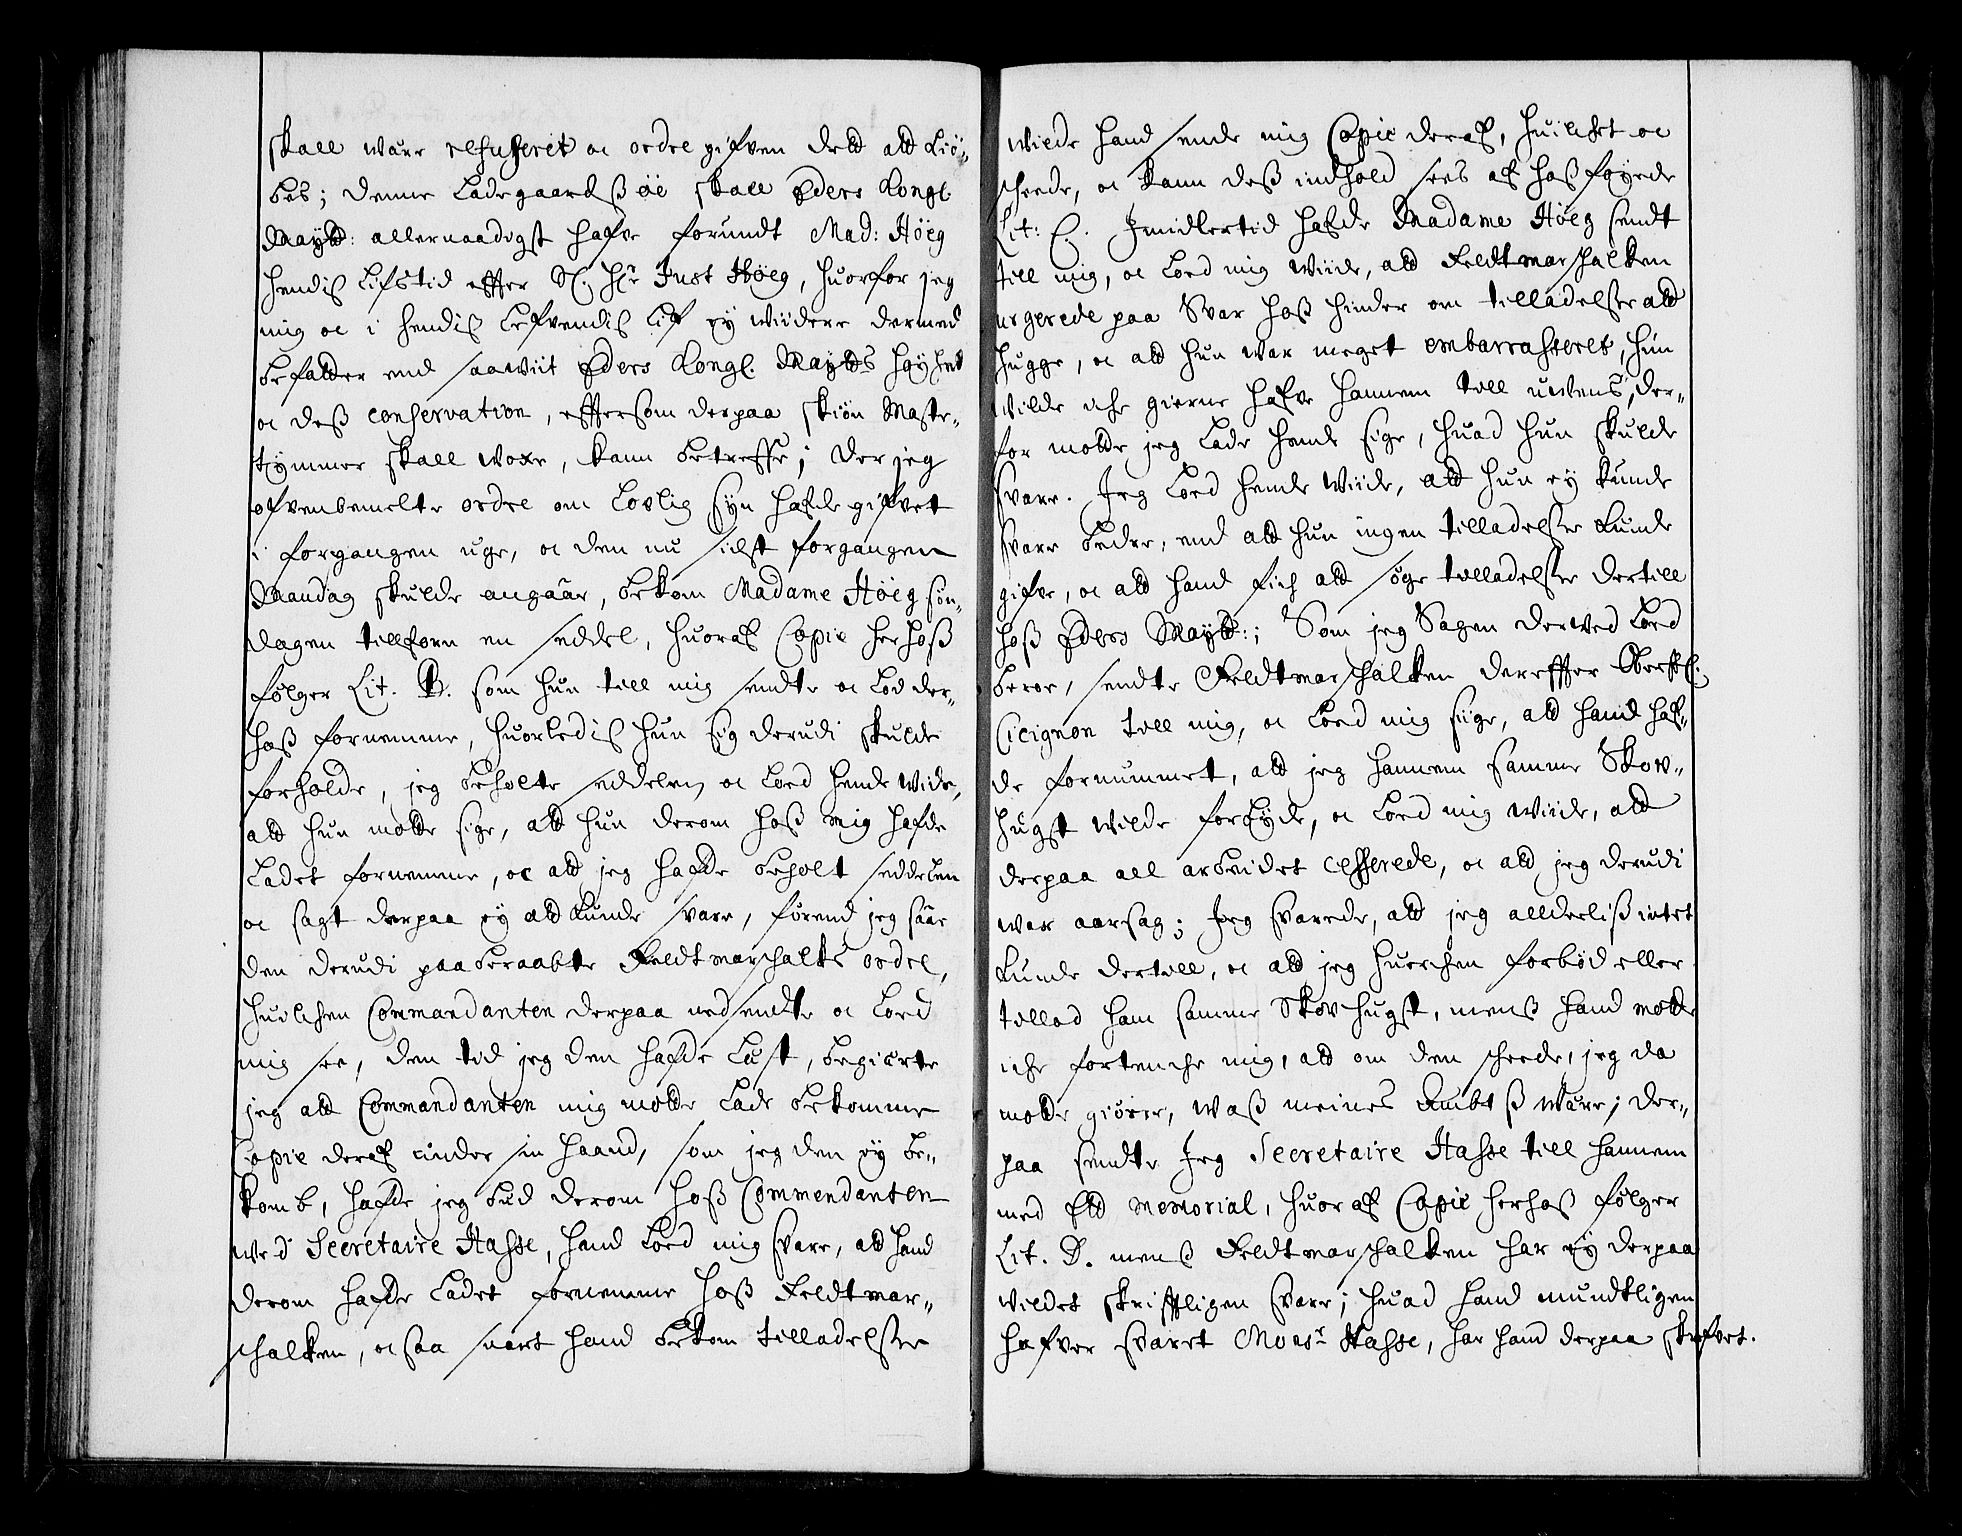 skall være refuserit oc ordre gifven dett att kiö-
bes; denne Ladegaardsß øe skall Eders Kongl.
Maytt: allernaadigst hafve forundt Mad: Höeg
hendiß Lifstid effter Sl. Hr. Just Höeg, huorfor jeg
mig oc i hendiß Lefvendiß Lif ey wiidere dermed
befatter end saawiit Eders Kongl. Maytts høyhed
oc deß conservation, effersom derpaa skiön Maste-
tymmer skall woxe, kann betreffe; der jeg
ofvenbemelte ordre om Lovlig syn hafde gifvet
i forgangen uge, oc den nu sidst forgangen
Mandag skulde angaar, bekom Madame Höeg sön-
dagen tillforn en seddel, huoraf Copie herhoß
følger Lit. B. som hun till mig sendte oc Lod der-
hoß fornemme, huorlediß hun sig derudi skulde
forholde, jeg beholte seddelen oc Loed hende wide,
att hun motte sige, att hun derom hoß mig hafde
Ladet fornemme, oc att jeg hafde beholt seddelen
oc sagt derpaa ey att kunde svare, förend jeg saae
den derudi paaberaabte Feldtmarschalks ordre,
huilchen Commandanten derpaa nedsendte oc Loed
mig see, den tid jeg den hafde Læst, begierte
jeg att Commandanten mig motte Lade bekomme
Copie deraf under sin haand, som jeg den ey be-
komb, hafde jeg bud derom hoß Commendanten
wed Secretaire Hasse, hand Loed mig svare, att hand
derom hafde Ladet fornemme hoß Feldtmar-
schalken, oc saa snart hand bekom tilladelsee
wilde hand sende mig Copie deraf, huilchet oc
scheede, oc kann deß indhold sees af hoßføyede
Lit: C. Imidlertid hafde Madame Höeg sendt
till mig, oc Loed mig wiide, att Feldtmarschalken
urgerede paa Svar hoß hinder om tilladelsse att
hugge, oc att hun war meget embarrasseret, hun
wilde iche gierne hafve hannem till uvens, der-
for motte jeg Lade hende sige, huad hun skulde
svare. Jeg Loed hende wiide, att hun ey kunde
svare bedre, end att hun ingen tilladelsse kunde
gifve, oc att hand fich att søge tilladelsse dertill
hoß Eders Maytt:; Som jeg Sagen derved Loed
beroe, sendte Feldtmarschalken dereffter Oberstl.
Cicignon till mig, oc Loed mig siige, att hand haf-
de fornummet, att jeg hannem samme Skov-
hugst wilde forbyde, oc Loed mig wiide, att
derpaa all arbeidet cesserede, oc att jeg derudi
war aarsag; Jeg svarede, att jeg allderliß intet
kunde dertill, oc att jeg huerchen forbød eller
tillod ham samme Skovhugst, menß hand motte
iche fortenche mig, att om den scheede, jeg da
motte giörre, waß meines Ambtß wäre; der-
paa sendte Jeg Secretaire Hasse till hannem
med Ett memorial, huoraf Copie herhoß følger
Lit. D. menß Feldtmarschalken har ey derpaa
wildet skrifftligen svare; huad hand mundtligen
hafver svaret Monsr. Hasse, har hand derpaa skrefvet.